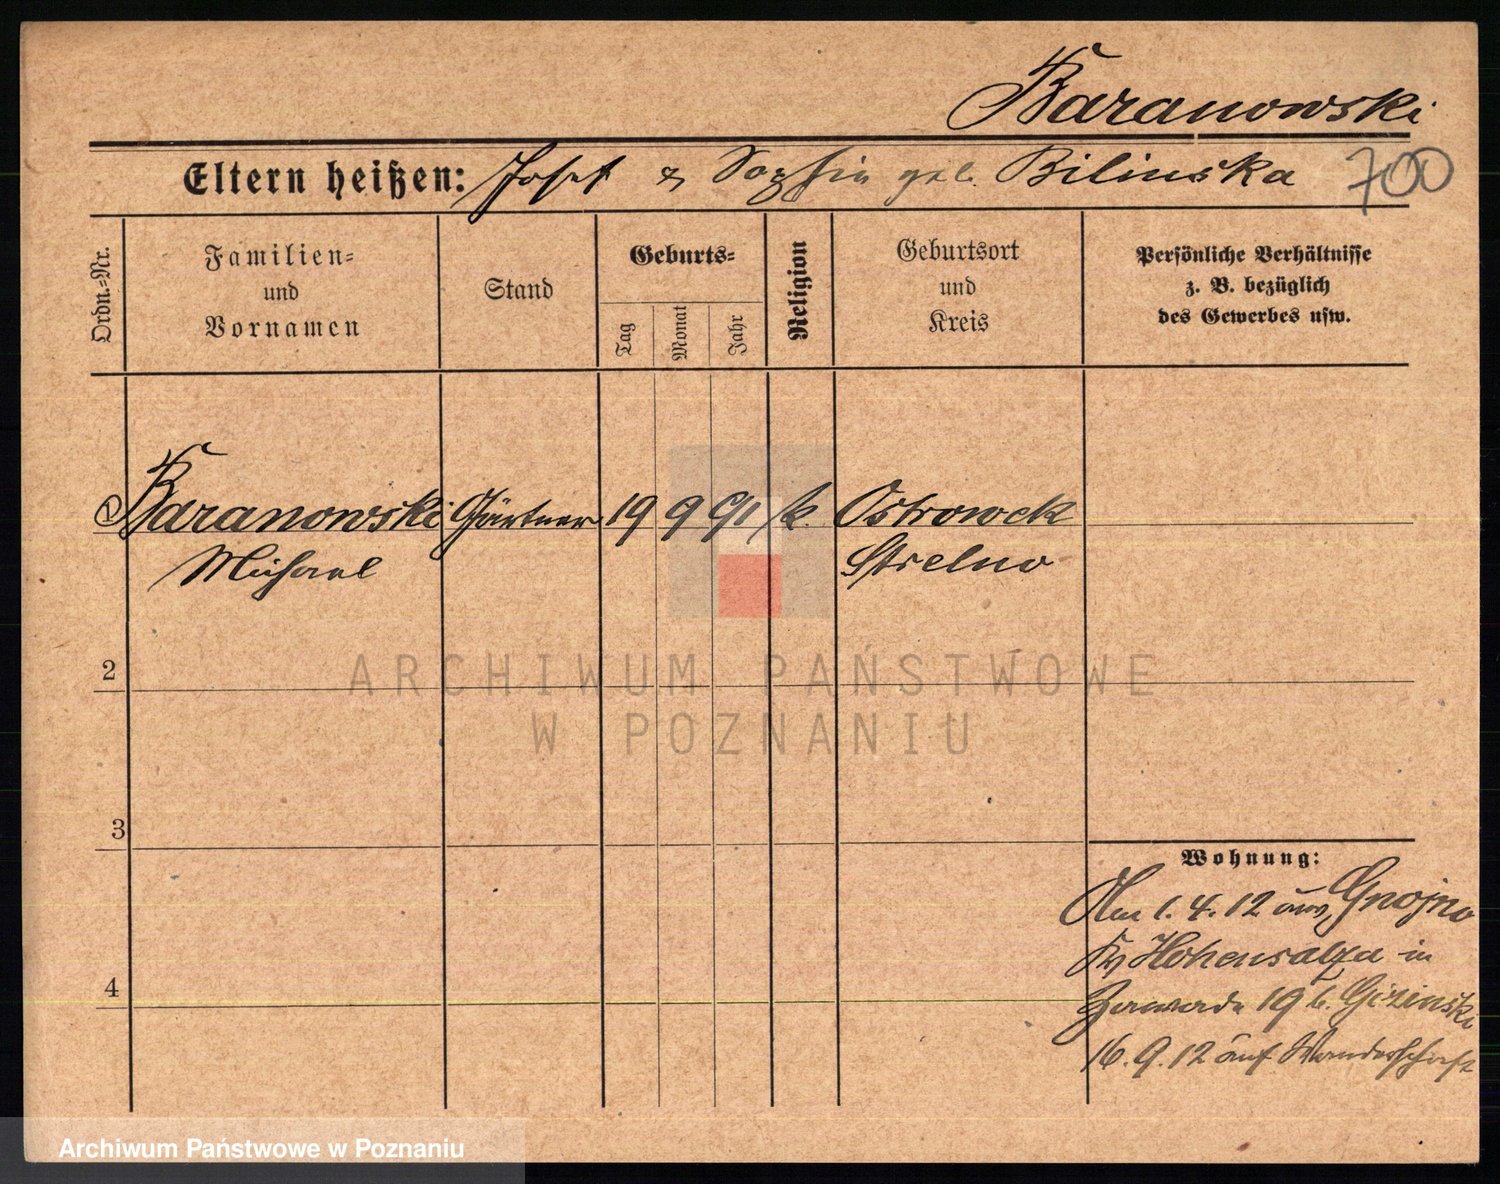 Baranowski
Eltern heißen: Josef & Sophie geb. Bilinska 700
Ordn.-Nr.
Familien-
und
Vornamen
Stand
Geburts-
Tag
Monat
Jahr
Religion
Geburtsort
und
Kreis
Persönliche Verhältnisse
z. B. bezüglich
des Gewerbes usw.
1 Baranowski Gärtner 19 9 91 k. Ostrowek
Michael Strelno
2
ARCHIWUM PAŃSTWOWE
W POZNANIU
3
Wohnung:
Am 1.4.12 aus Gnojno
Kr Hohensalza in
19 b. Gizinski
4
16.9.12 auf Wanderschaft
Archiwum Państwowe w Poznaniu